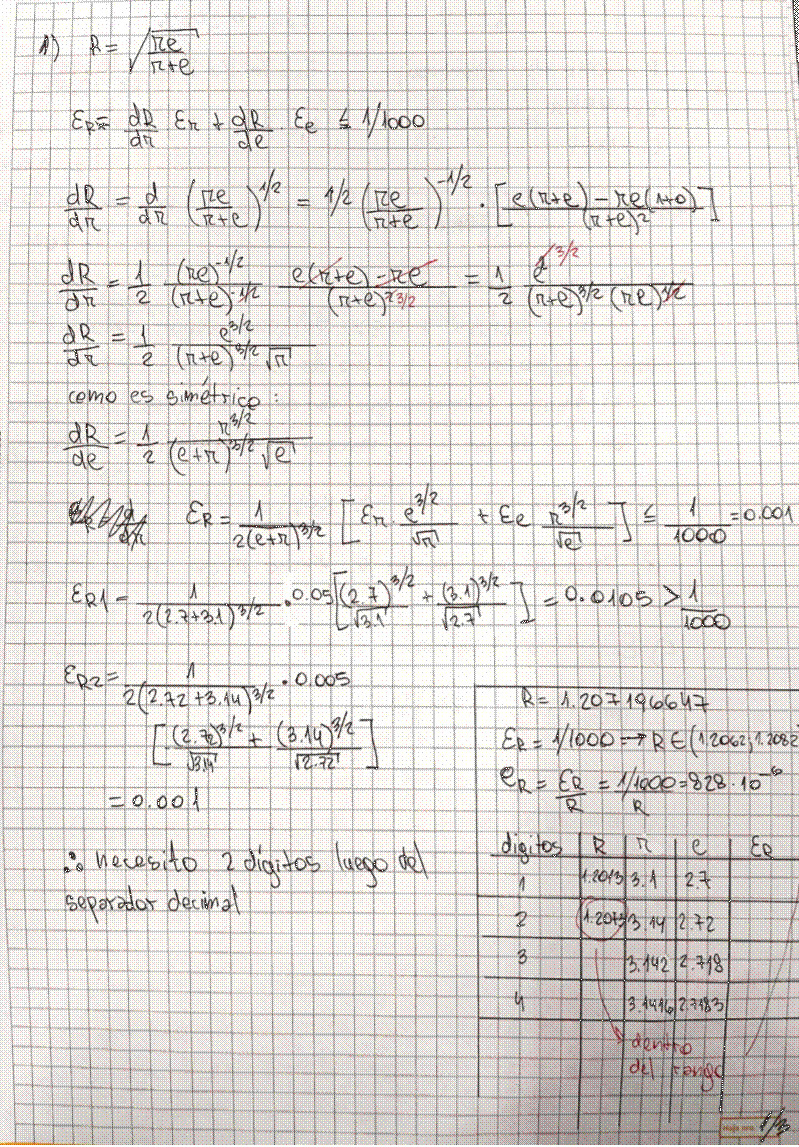 1) R = √(πe/(π+e))
ε_R = dR/dπ ε_π + dR/de · ε_e ≤ 1/1000
dR/dπ = d/dπ (πe/(π+e))^(1/2) = 1/2 (πe/(π+e))^(-1/2) · [(e(π+e) - πe(1+0))/(π+e)^2]
dR/dπ = 1/2 (πe)^(-1/2)/(π+e)^(-1/2) (e(π+e) - πe)/(π+e)^(2 3/2) = 1/2 e^(2 3/2)/((π+e)^(3/2) (πe)^(1/2))
dR/dπ = 1/2 e^(3/2)/((π+e)^(3/2) √π)
como es simétrico:
dR/de = 1/2 π^(3/2)/((e+π)^(3/2) √e)
ε_R = 1/(2(e+π)^(3/2)) [ε_π · e^(3/2)/√π + ε_e π^(3/2)/√e] ≤ 1/1000 = 0.001
ε_R1 = 1/(2(2.7+3.1)^(3/2)) · 0.05 [(2.7)^(3/2)/√3.1 + (3.1)^(3/2)/√2.7] = 0.0105 > 1/1000
ε_R2 = 1/(2(2.72+3.14)^(3/2)) · 0.005
[(2.72)^(3/2)/√3.14 + (3.14)^(3/2)/√2.72]
= 0.001
∴ necesito 2 dígitos luego del
separador decimal
R = 1.207196647
ε_R = 1/1000 → R ∈ (1.2062; 1.2082
e_R = ε_R/R = 1/1000/R = 828 · 10^-6
dígitos R π e ε_R
1 1.2013 3.1 2.7
2 3.14 2.72
3 3.142 2.718
4 3.1416 2.7183
dentro
del rango